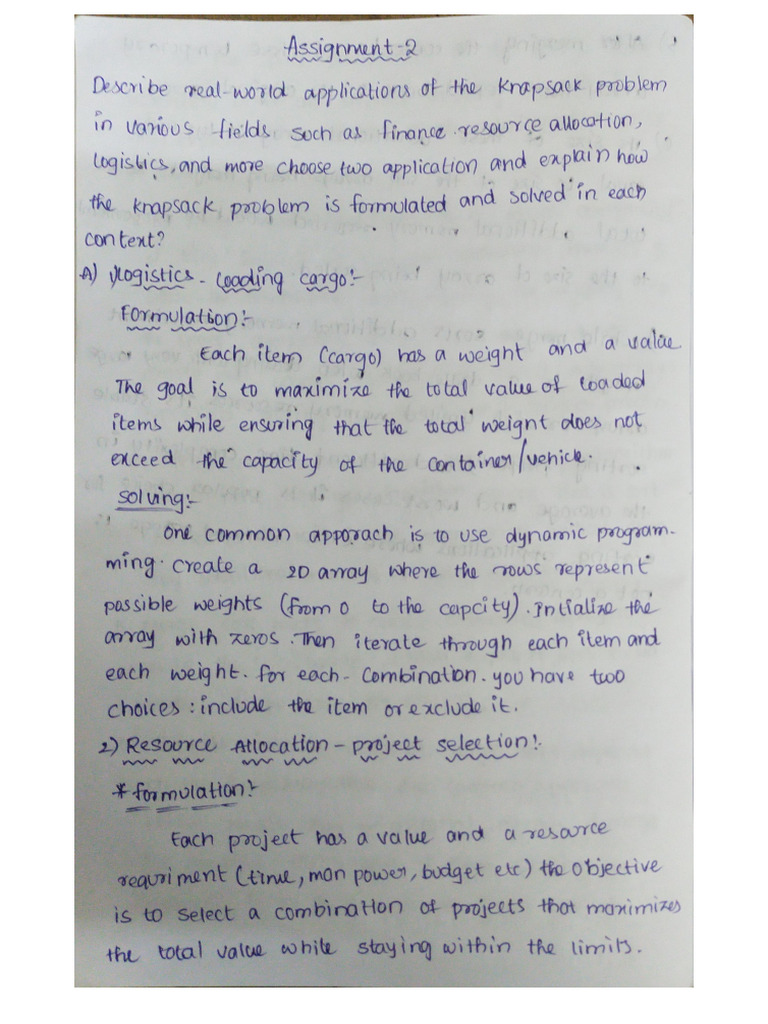 Assignment-2
Describe real-world applications of the knapsack problem
in various fields such as finance.resource allocation,
logistics, and more choose two application and explain how
the knapsack problem is formulated and solved in each
context?
A) 1) logistics - loading cargo:-
Formulation:-
Each item (cargo) has a weight and a value.
The goal is to maximize the total value of loaded
items while ensuring that the total weight does not
exceed the capacity of the container/vehicle.
solving:-
One common apporach is to use dynamic program-
ming. create a 2D array where the rows represent
possible weights (from 0 to the capcity). Intialize the
array with zeros. Then iterate through each item and
each weight. for each- combination. you have two
choices: include the item or exclude it.
2) Resource Allocation - project selection:-
* formulation:-
Each project has a value and a resource
requriment (time, man power, budget etc) the objective
is to select a combination of projects that maximizes
the total value while staying within the limits.